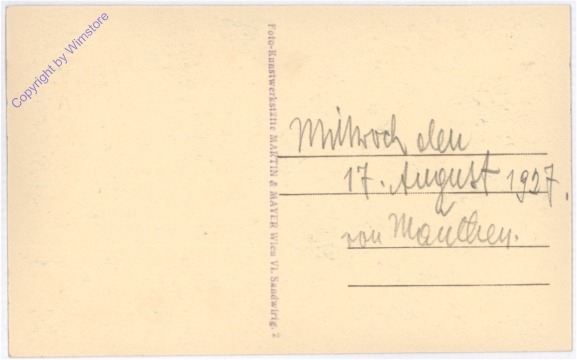 Copyright by Wimstore
Foto-Kunstwerkstätte MARTIN & MAYER Wien VI. Sandwirtg. 2
Mittwoch den
17. August 1927.
von